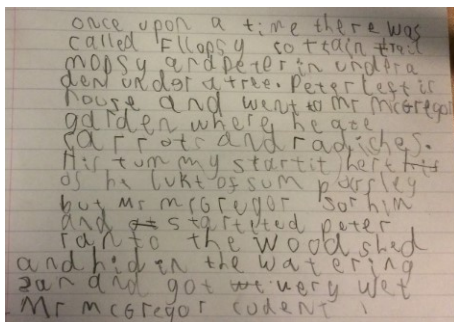 once upon a time there was
called Fllopsy so ttain trail
mopsy and peter in undpra
den undor a tree. Peter left is
house and went to Mr mcGregor
garden where he ate
carrots and radiches.
His tum my startit hert his
os he lukt of sum parsley
but Mr mcGregor sor him
and startited peter
ran to the wood shed
and hid in the watering
can and got very wet
Mr mcGregor cudent